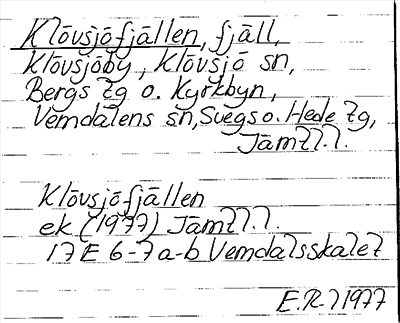 Klövsjöfjällen, fjäll,
Klövsjöby, Klövsjö sn,
Bergs tg o. Kyrkbyn,
Vemdalens sn, Svegs o. Hede tg,
Jämtl. l.
Klövsjöfjällen
ek (1977) Jämtl. l.
17 E 6-7 a-b Vemdalsskalet
E.R. 1977